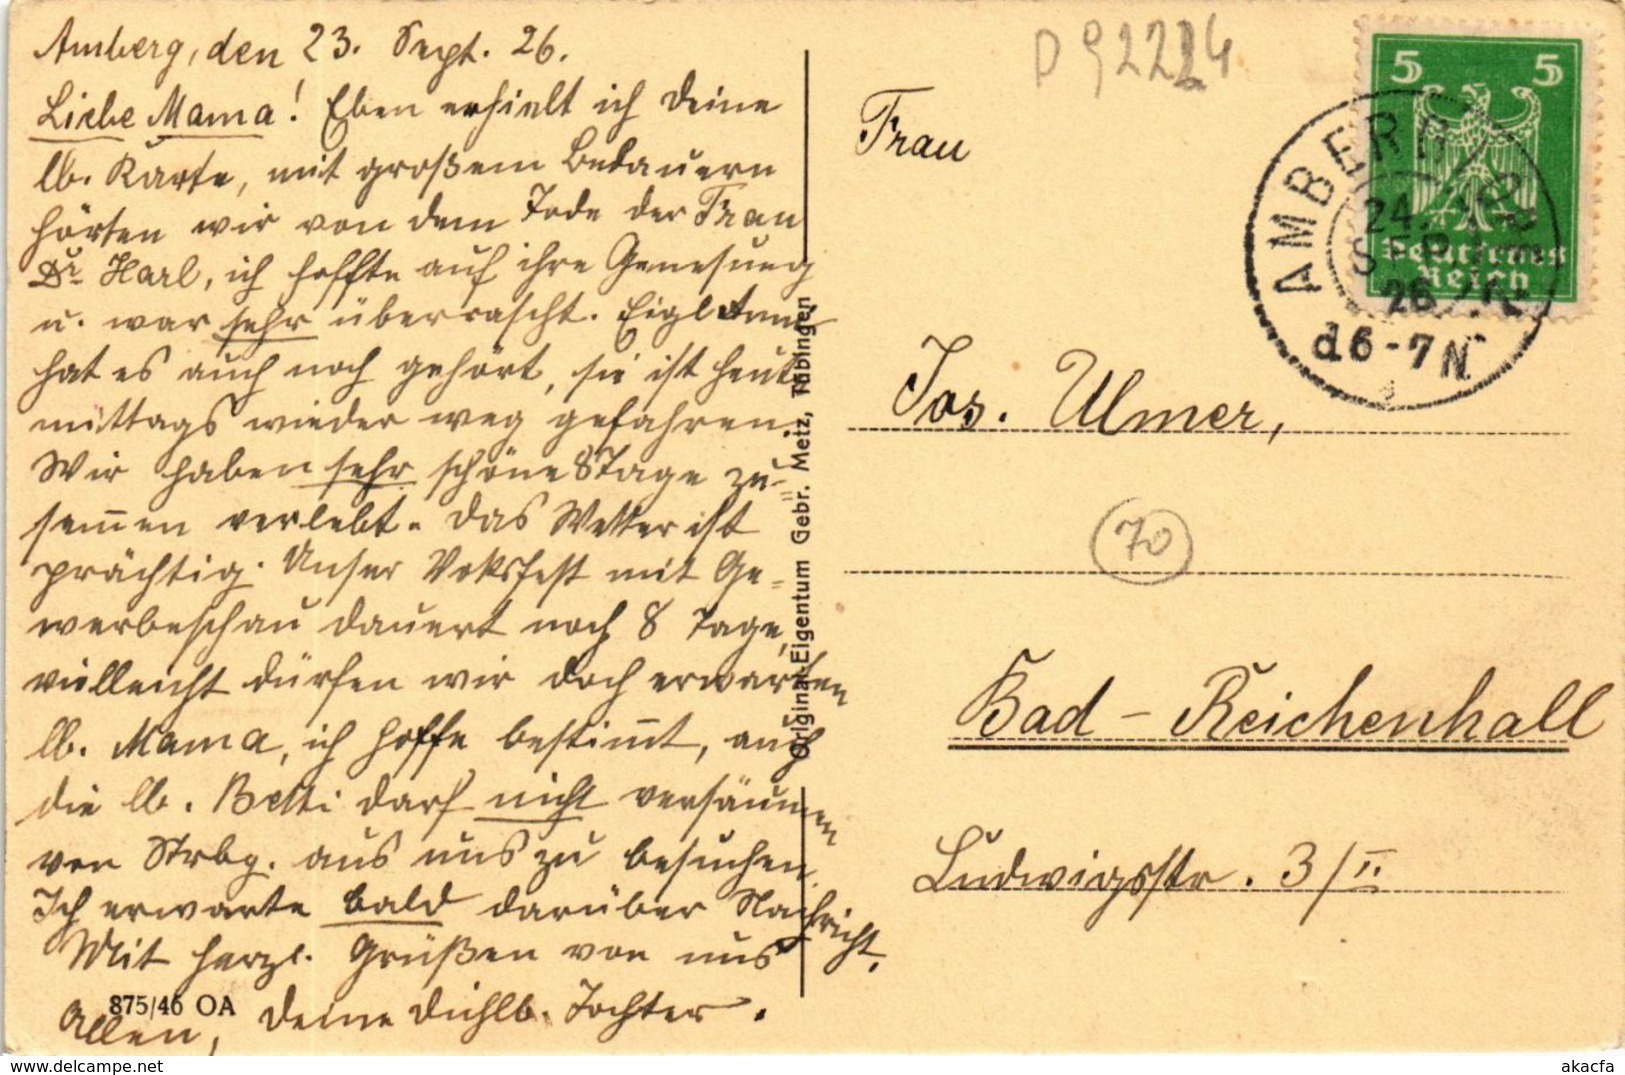 Amberg, den 23. Sept. 26.
Liebe Mama! Eben erhielt ich Deine
lb. Karte, mit großem Bedauern
hörten wir von dem Tode der Frau
Dr Harl, ich hoffte auf ihre Genesung
u. war sehr überrascht. Eigl Anna
hat es auch noch gehört, sie ist heut
mittags wieder weg gefahren.
Wir haben sehr schöne 8 Tage zu-
sam̄en verlebt. Das Wetter ist
prächtig. Unser Volksfest mit Ge-
werbeschau dauert noch 8 Tage,
vielleicht dürfen wir doch erwarten
lb. Mama, ich hoffe bestim̄t, auch
die lb. Betti darf nicht versäumen
von Strbg. aus uns zu besuchen.
Ich erwarte bald darüber Nachricht.
Mit herzl. Grüßen von uns
Allen, Deine Dichlb. Tochter.
875/46 OA
Original-Eigentum Gebr. Metz, Tübingen
D 92224
5 5
Deutsches
Reich
AMBERG
24. SEP.
26
d 6-7 N
Frau
Jos. Ulmer,
70
Bad-Reichenhall
Ludwigsstr. 3/II.
akacfa
https://www.delcampe.net